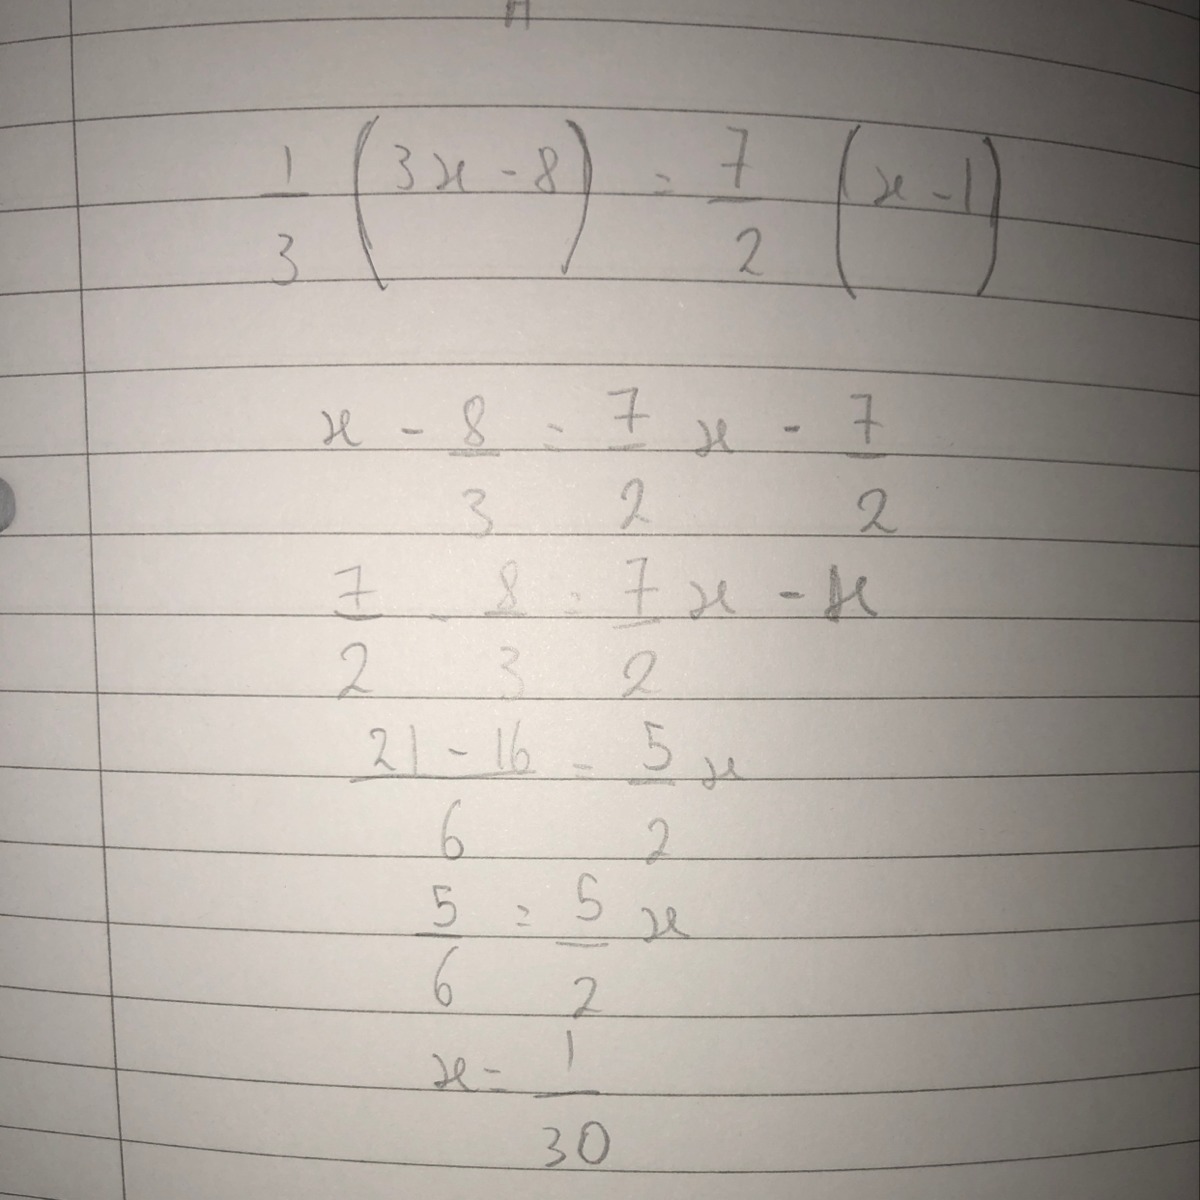 1/3 (3x - 8) = 7/2 (x - 1)
x - 8/3 = 7/2 x - 7/2
7/2 - 8/3 = 7/2 x - x
21 - 16/6 = 5/2 x
5/6 = 5/2 x
x = 1/30